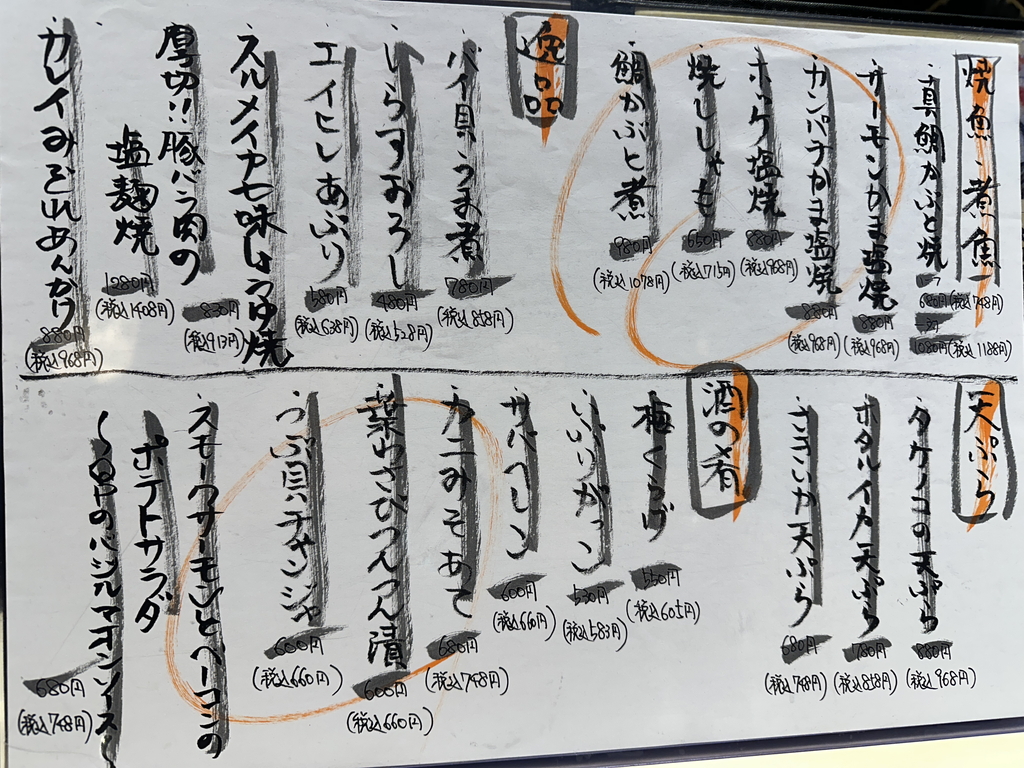 焼魚・煮魚
真鯛かぶと焼
680円(税込748円)
1080円(税込1188円)
サーモンかま塩焼
880円
(税込968円)
カンパチかま塩焼
880円
(税込968円)
ホッケ塩焼
880円
(税込968円)
焼ししゃも
650円
(税込715円)
鯛かぶと煮
980円
(税込1078円)
逸品
バイ貝うま煮
780円
(税込858円)
しらすおろし
480円
(税込528円)
エイヒレあぶり
580円
(税込638円)
スルメイカ七味しょうゆ焼
830円
(税込913円)
厚切!!豚バラ肉の
塩麹焼
1280円
(税込1408円)
カレイみぞれあんかけ
880円
(税込968円)
天ぷら
タケノコの天ぷら
880円
(税込968円)
ホタルイカ天ぷら
780円
(税込858円)
さきいか天ぷら
680円
(税込748円)
酒の肴
梅くらげ
550円
(税込605円)
いぶりがっこ
530円
(税込583円)
サバへしこ
600円
(税込660円)
カニみそあて
680円
(税込748円)
葉わさびつんつん漬
600円
(税込660円)
つぶ貝チャンジャ
600円
(税込660円)
スモークサーモンとベーコンの
ポテトサラダ
のバジルマヨソース～
680円
(税込748円)